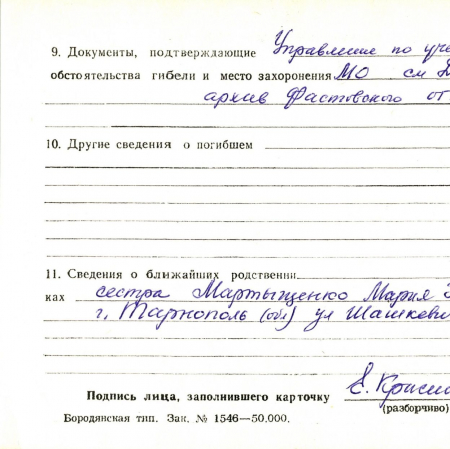 9. Документы, подтверждающие Управление по
обстоятельства гибели и место захоронения МО см
архив Фастовского
10. Другие сведения о погибшем
11. Сведения о ближайших родственни-
ках сестра Мартыщенко Мария
г. Тарнополь (обл) ул
Подпись лица, заполнившего карточку Е.
(разборчиво)
Бородянская тип. Зак. № 1546—50.000.